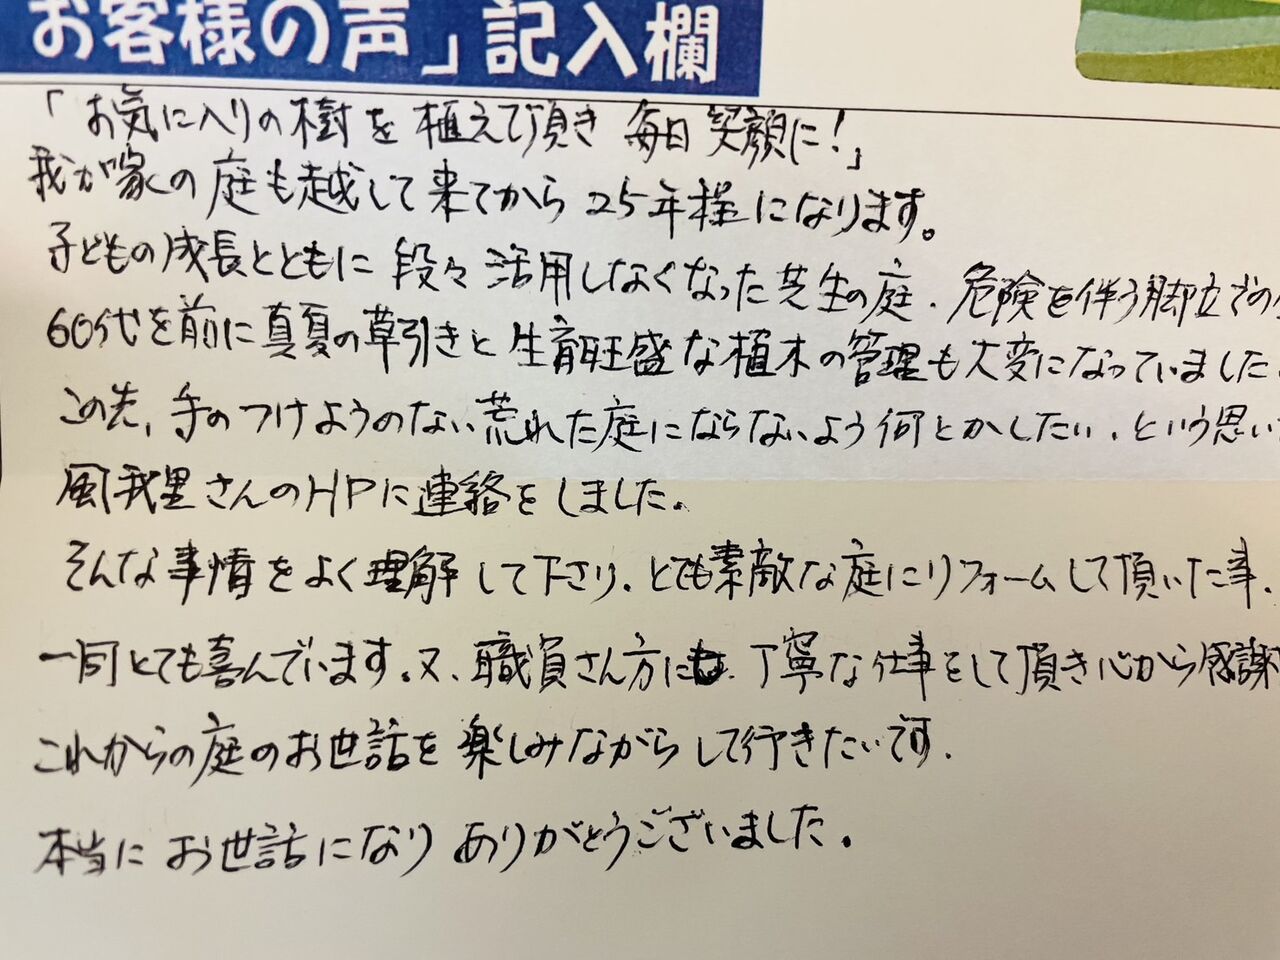 お客様の声」記入欄
「お気に入りの樹を植えて頂き 毎日笑顔に!」
我が家の庭も越して来てから 25年程になります。
子どもの成長とともに 段々 活用しなくなった芝生の庭、危険を伴う脚立での
60代を前に真夏の草引きと 生育旺盛な植木の管理も大変になっていました。
この先、手のつけようのない荒れた庭にならないよう何とかしたい、という思い
風我里さんのHPに連絡をしました。
そんな事情をよく理解して下さり、とても素敵な庭にリフォームして頂いた事、
一同とても喜んでいます。又、職員さん方にも、丁寧な仕事をして頂き心から感謝
これからの庭のお世話を 楽しみながらして行きたいです。
本当に お世話になり ありがとうございました。